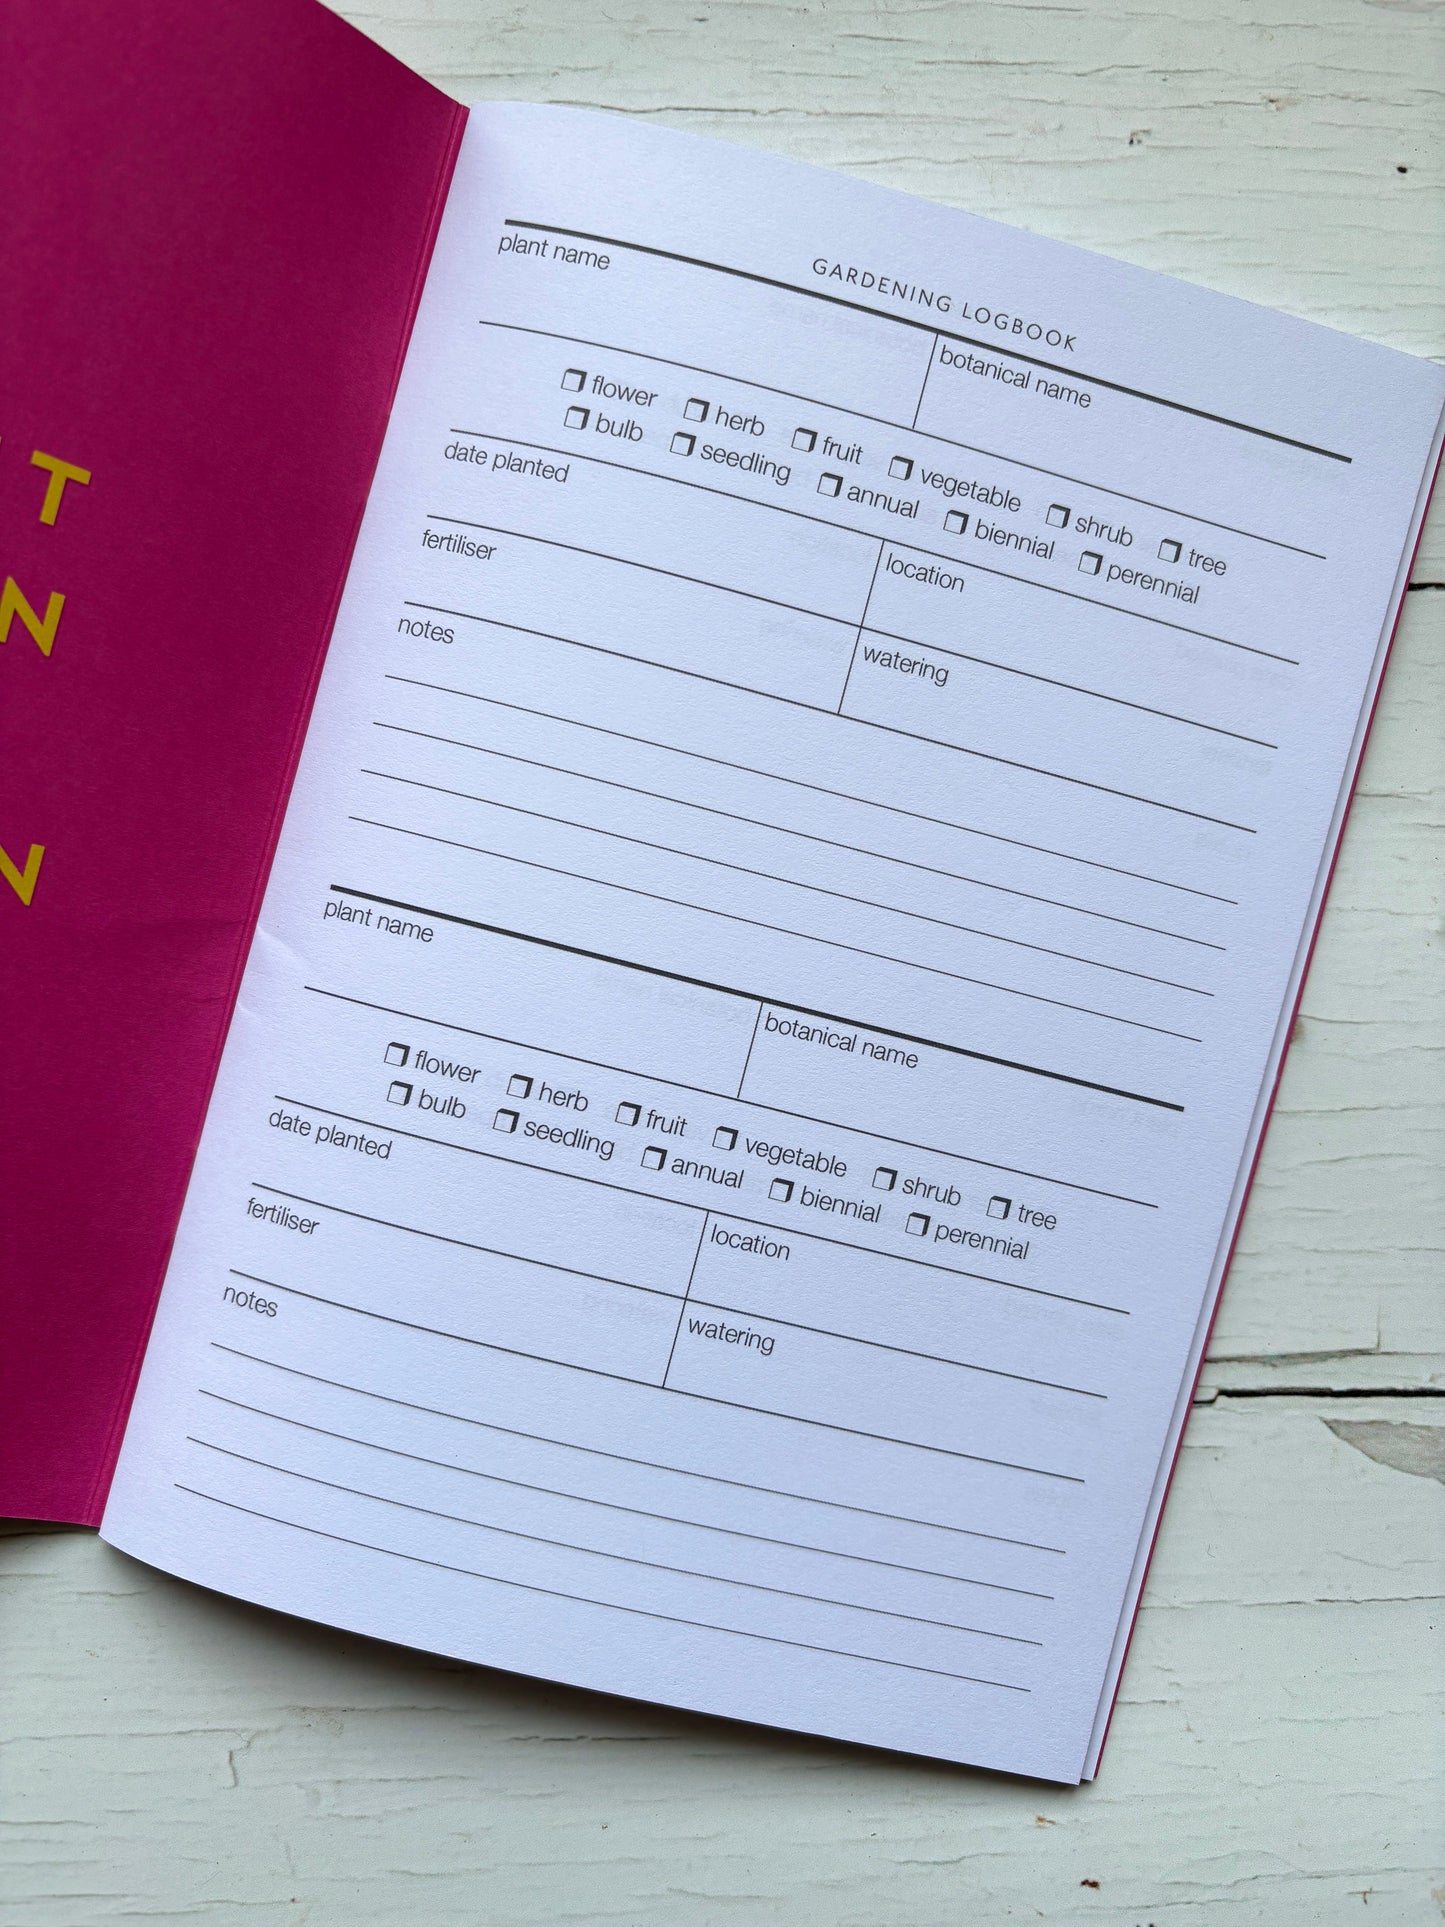 T
N
N
GARDENING LOGBOOK
plant name
botanical name
flower herb fruit vegetable shrub tree
bulb seedling annual biennial perennial
date planted location
fertiliser watering
notes
plant name
botanical name
flower herb fruit vegetable shrub tree
bulb seedling annual biennial perennial
date planted location
fertiliser watering
notes